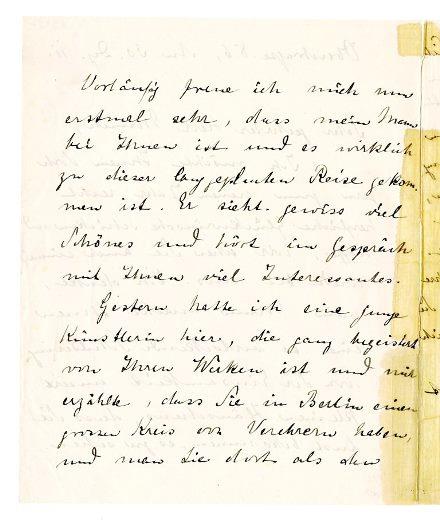 Vorläufig freue ich mich nun
erstmal sehr, dass mein Mann
bei Ihnen ist und es wirklich
zu dieser langgeplanten Reise gekom-
men ist. Er sieht gewiss viel
Schönes und hört im Gespräch
mit Ihnen viel Interessantes.
Gestern hatte ich eine junge
Künstlerin hier, die ganz begeistert
von Ihrem Wirken ist und mir
erzählte, dass Sie in Berlin einen
grossen Kreis von Verehrern haben,
und man Sie dort als den